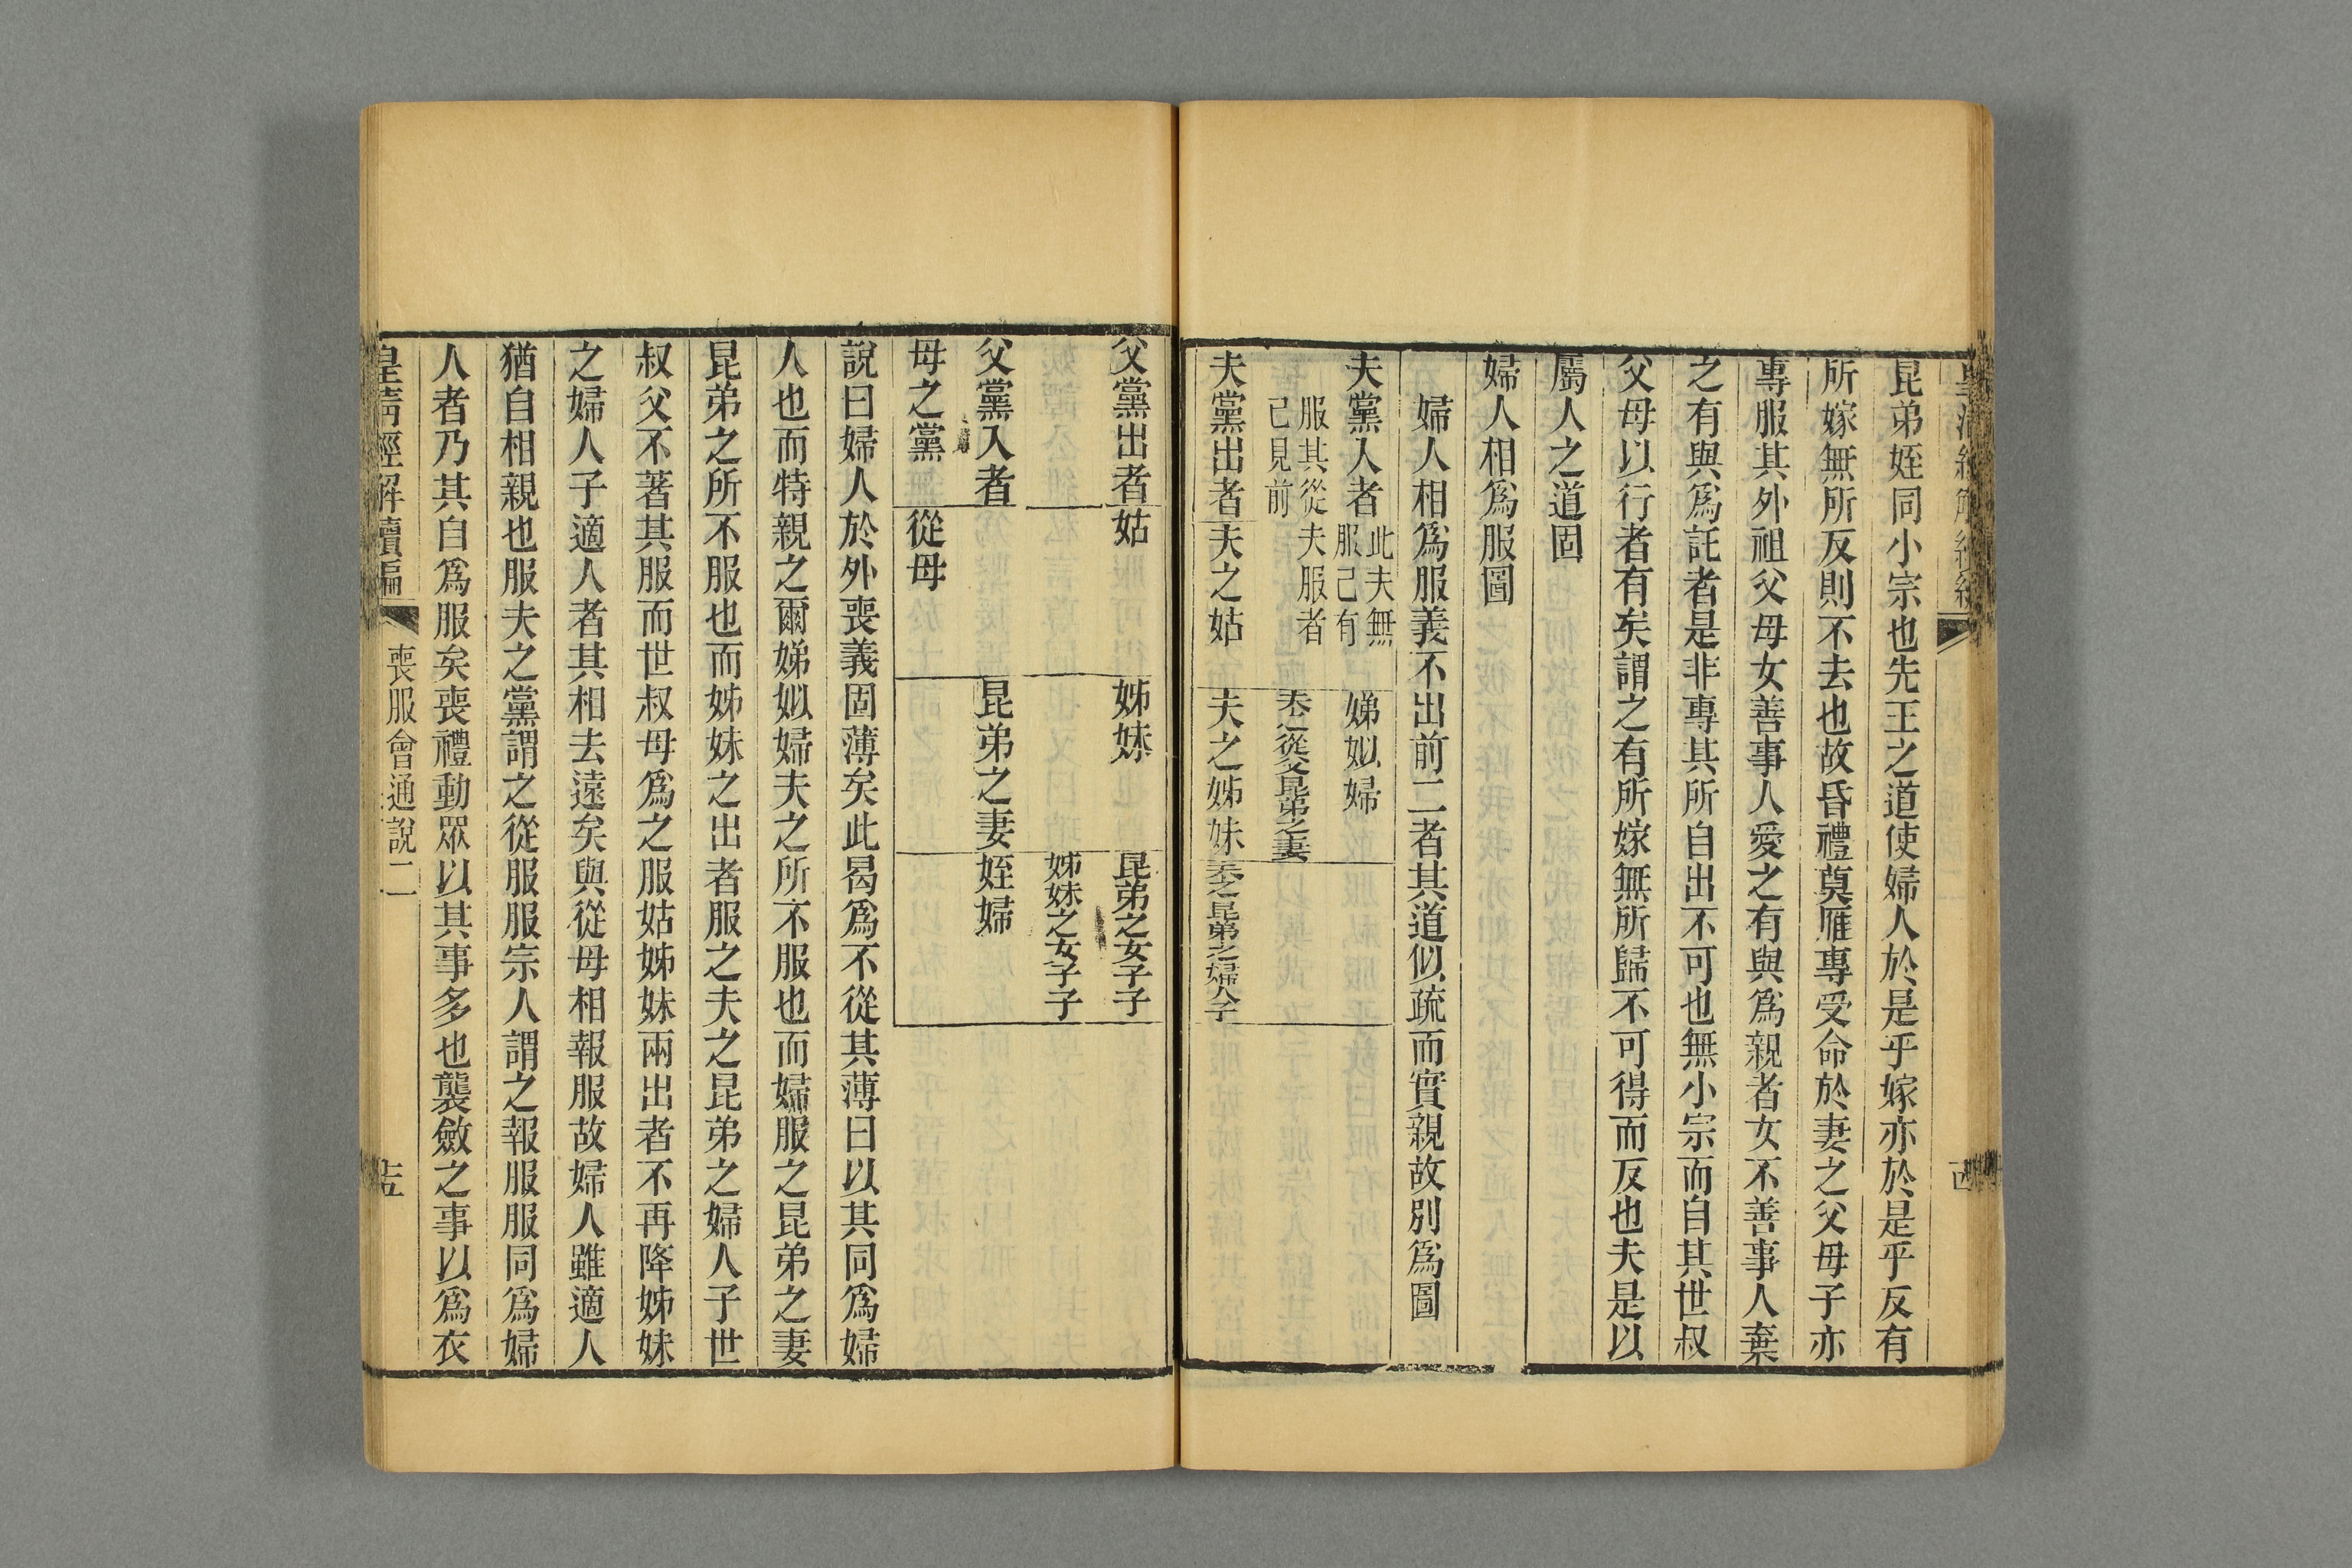 昆弟姪同小宗也先王之道使婦人於是乎嫁亦於是乎反有
所嫁無所反則不去也故昏禮奠雁專受命於妻之父母子亦
專服其外祖父母女善事人愛之有與爲親者女不善事人棄
之有與爲託者是非專其所自出不可也無小宗而自其世叔
父母以行者有矣謂之有所嫁無所歸不可得而反也夫是以
屬人之道固
婦人相爲服圖
婦人相爲服義不出前二者其道似疏而實親故別爲圖
夫黨入者
此夫無
服己有
服其從夫服者
己見前
娣姒婦
夫之從父昆弟之妻
夫黨出者
夫之姑
夫之姊妹
夫之昆弟之婦人子
父黨出者
姑
姊妹
昆弟之女子子
姊妹之女子子
父黨入者
昆弟之妻
姪婦
母之黨
從母
說曰婦人於外喪義固薄矣此曷爲不從其薄曰以其同爲婦
人也而特親之爾娣姒婦夫之所不服也而婦服之昆弟之妻
昆弟之所不服也而姊妹之出者服之夫之昆弟之婦人子世
叔父不著其服而世叔母爲之服姑姊妹兩出者不再降姊妹
之婦人子適人者其相去遠矣與從母相報服故婦人雖適人
猶自相親也服夫之黨謂之從服服宗人謂之報服服同爲婦
人者乃其自爲服矣喪禮動眾以其事多也襲斂之事以爲衣
皇淸經解續編
喪服會通說二